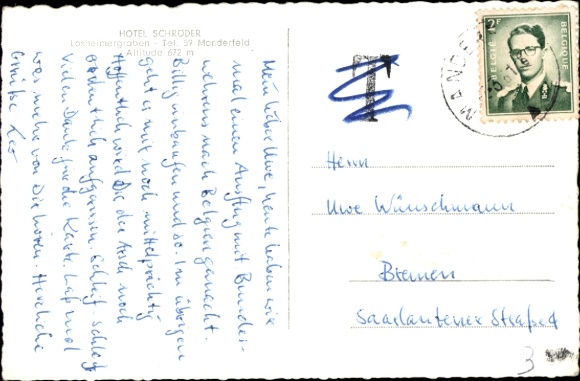 HOTEL SCHRÖDER
Losheimergraben - Tel. 59 Manderfeld
Altitude 672 m
Mein lieber Uwe, heute haben wir
mal einen Ausflug mit Bundes-
wehrens nach Belgien gemacht.
Billig einkaufen und so. Im übrigen
geht es mir noch mittelprächtig
Hoffentlich wird Dir der Arsch noch
ordentlich aufgerissen. Schleif - schleif
Vielen Dank für die Karte. Laß mal
was mehr von Dir hören. Herzliche
Grüße
T
2F
BELGIE
BELGIQUE
MANDE
Herrn
Uwe Wünschmann
Bremen
Saarlauterner Straße 4
3